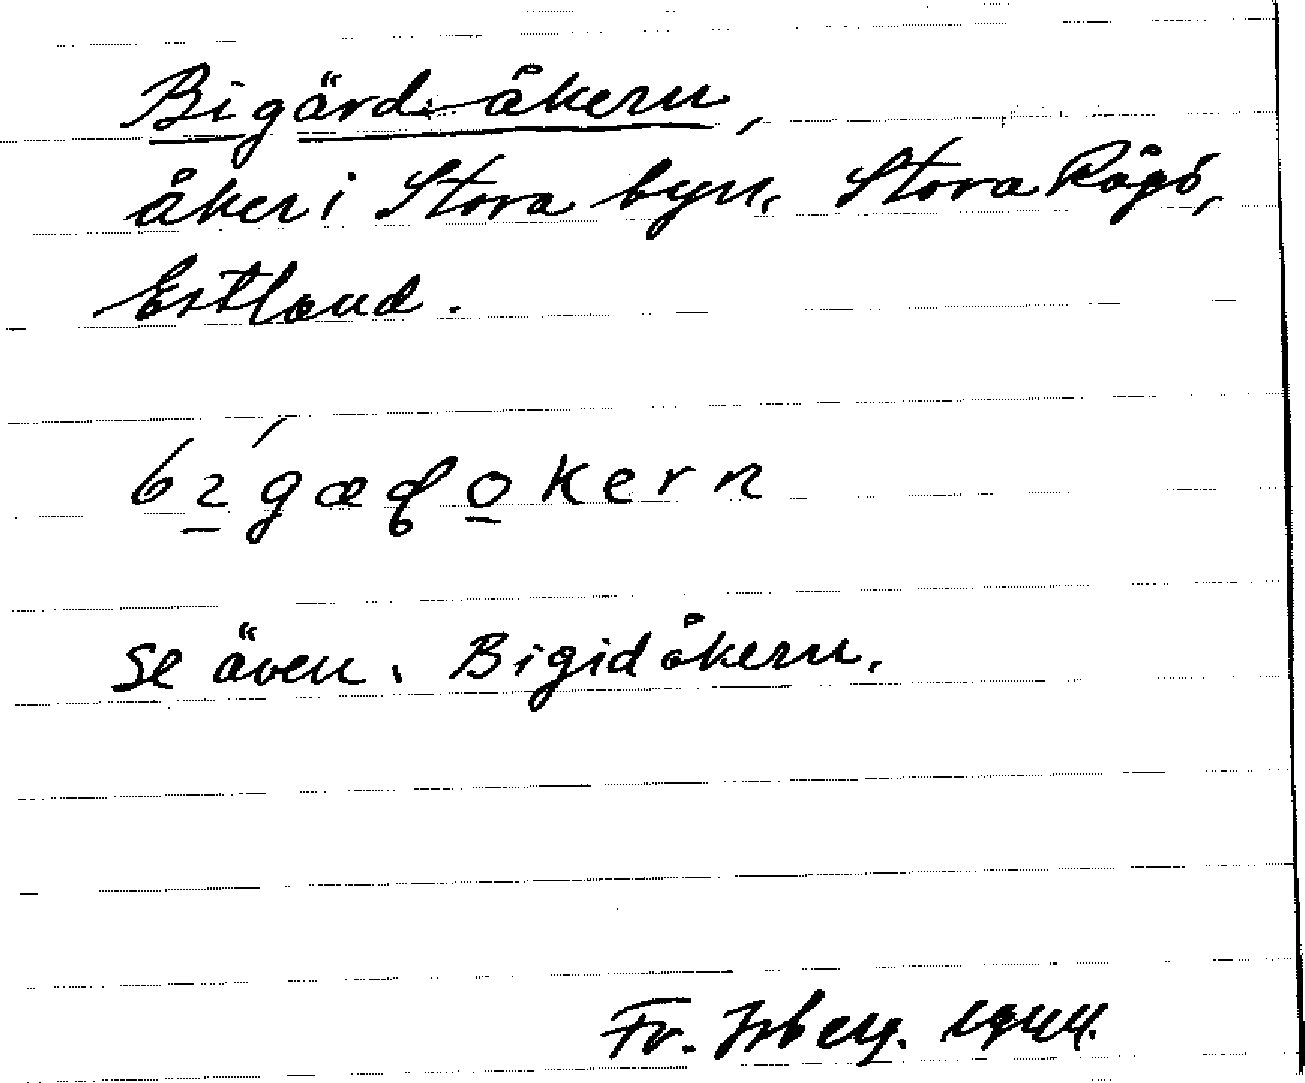 Bigärd-åkern,
åker i Stora byn, Stora Rågö,
Estland.
se även. Bigidåkern.
Fr. Isberg. 1944.